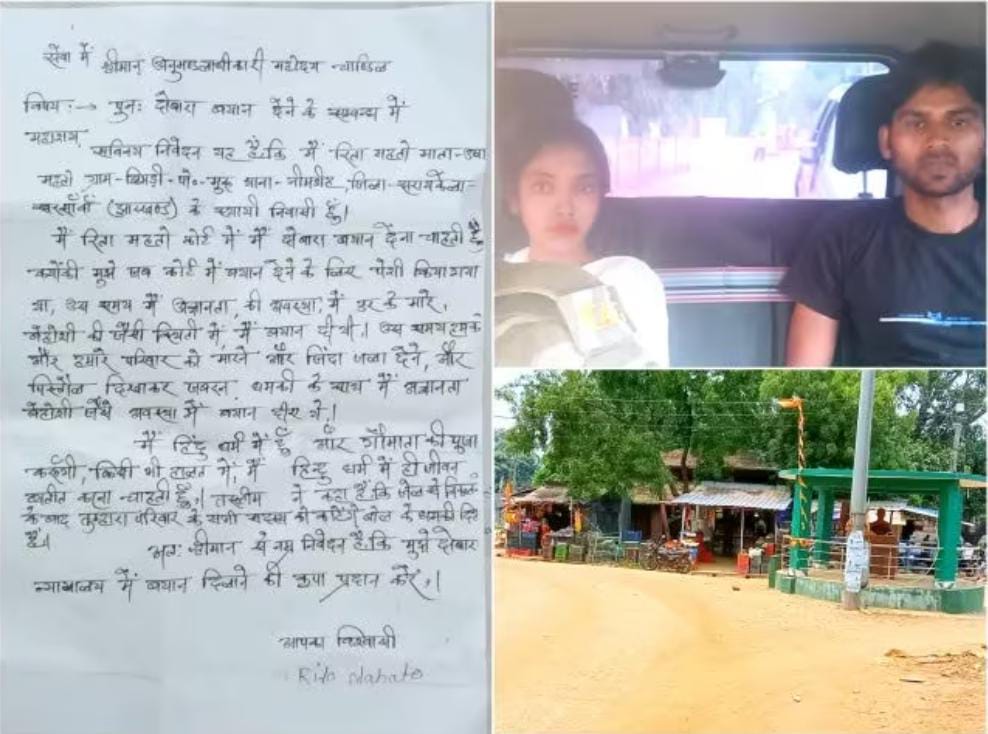 सेवा में
श्रीमान अनुमण्डलाधीकारी महोदय चाण्डिल
विषय :-→ पुनः दोबारा बयान देने के सम्बन्ध में
महाशय,
सविनय निवेदन यह है कि मैं रिता महतो माता-उषा
महतो ग्राम- पो०-मुरू थाना-नीमडीह, जिला-सरायकेला-
खरसाँवा (झारखण्ड) के स्थायी निवासी हूँ।
मैं रिता महतो कोर्ट में मैं दोबारा बयान देना चाहती हूँ
क्योंकी मुझे जब कोर्ट में बयान देने के लिए पेशी किया गया
था, उस समय मैं अज्ञानता की अवस्था, में डर के मारे,
बेहोशी की जैसी स्थिती में, मैं बयान दी थी। उस समय हमको
और हमारे परिवार को मारने और जिंदा जला देने, और
पिस्तौल दिखाकर जबरन धमकी के साथ मैं अज्ञानता
बेहोशी जैसे अवस्था में बयान दीए थे।
मैं हिंदु धर्म में हूँ और गौमाता की पुजा
करूंगी, किसी भी हालत में, मैं हिन्दु धर्म में ही जीवन
व्यतीत करना चाहती हूँ। तस्लीम ने कहा है कि जेल से निकलने
के बाद तुम्हारा परिवार के सभी सदस्य को काटेंगे बोल के धमकी दिये
है।
अतः श्रीमान से नम्र निवेदन है कि मुझे दोबारा
न्यायालय में बयान दिलाने की कृपा प्रदान करें,।
आपका विश्वासी
Rita Mahato